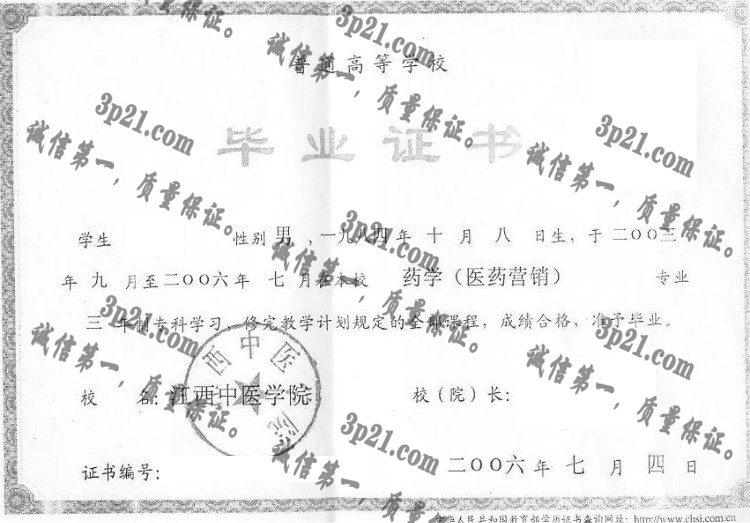 普通高等学校
毕业证书
学生 性别 男 ，一九八四年 十 月 八 日生，于二〇〇三
年 九 月至二〇〇六年 七 月在本校 药学（医药营销） 专业
三 年制专科学习，修完教学计划规定的全部课程，成绩合格，准予毕业。
校 名：江西中医学院 校（院）长：
西中医 院
二〇〇六年 七 月 四 日
证书编号：
中华人民共和国教育部学历证书查询网址：http://www.chsi.com.cn
3p21.com
诚信第一，质量保证。
3p21.com
诚信第一，质量保证。
3p21.com
诚信第一，质量保证。
3p21.com
诚信第一，质量保证。
3p21.com
诚信第一，质量保证。
3p21.com
诚信第一，质量保证。
3p21.com
诚信第一，质量保证。